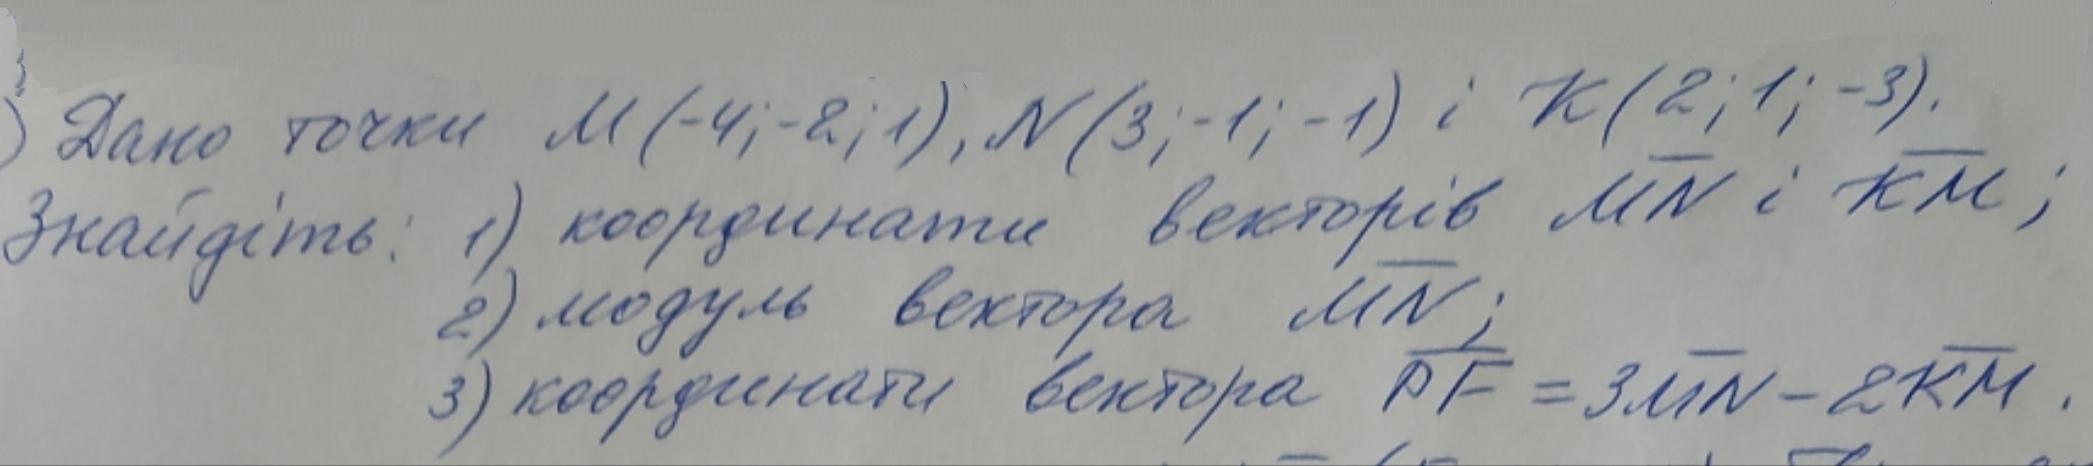 ) Дано точки M(-4;-2;1), N(3;-1;-1) і K(2;1;-3).
Знайдіть: 1) координати векторів M̅N̅ і K̅M̅;
2) модуль вектора M̅N̅;
3) координати вектора P̅F̅ = 3M̅N̅ - 2K̅M̅.